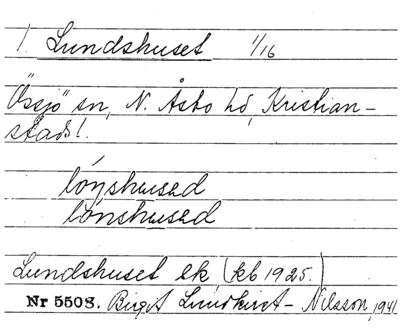 1. Lundshuset 1/16
Össjö sn, N. Åsbo hd, Kristian-
stads l.
lóŋshused
lònshused
Lundshuset ek, (kb 1925.)
Nr 5508. Birgit Lundkvist-Nilsson, 1941